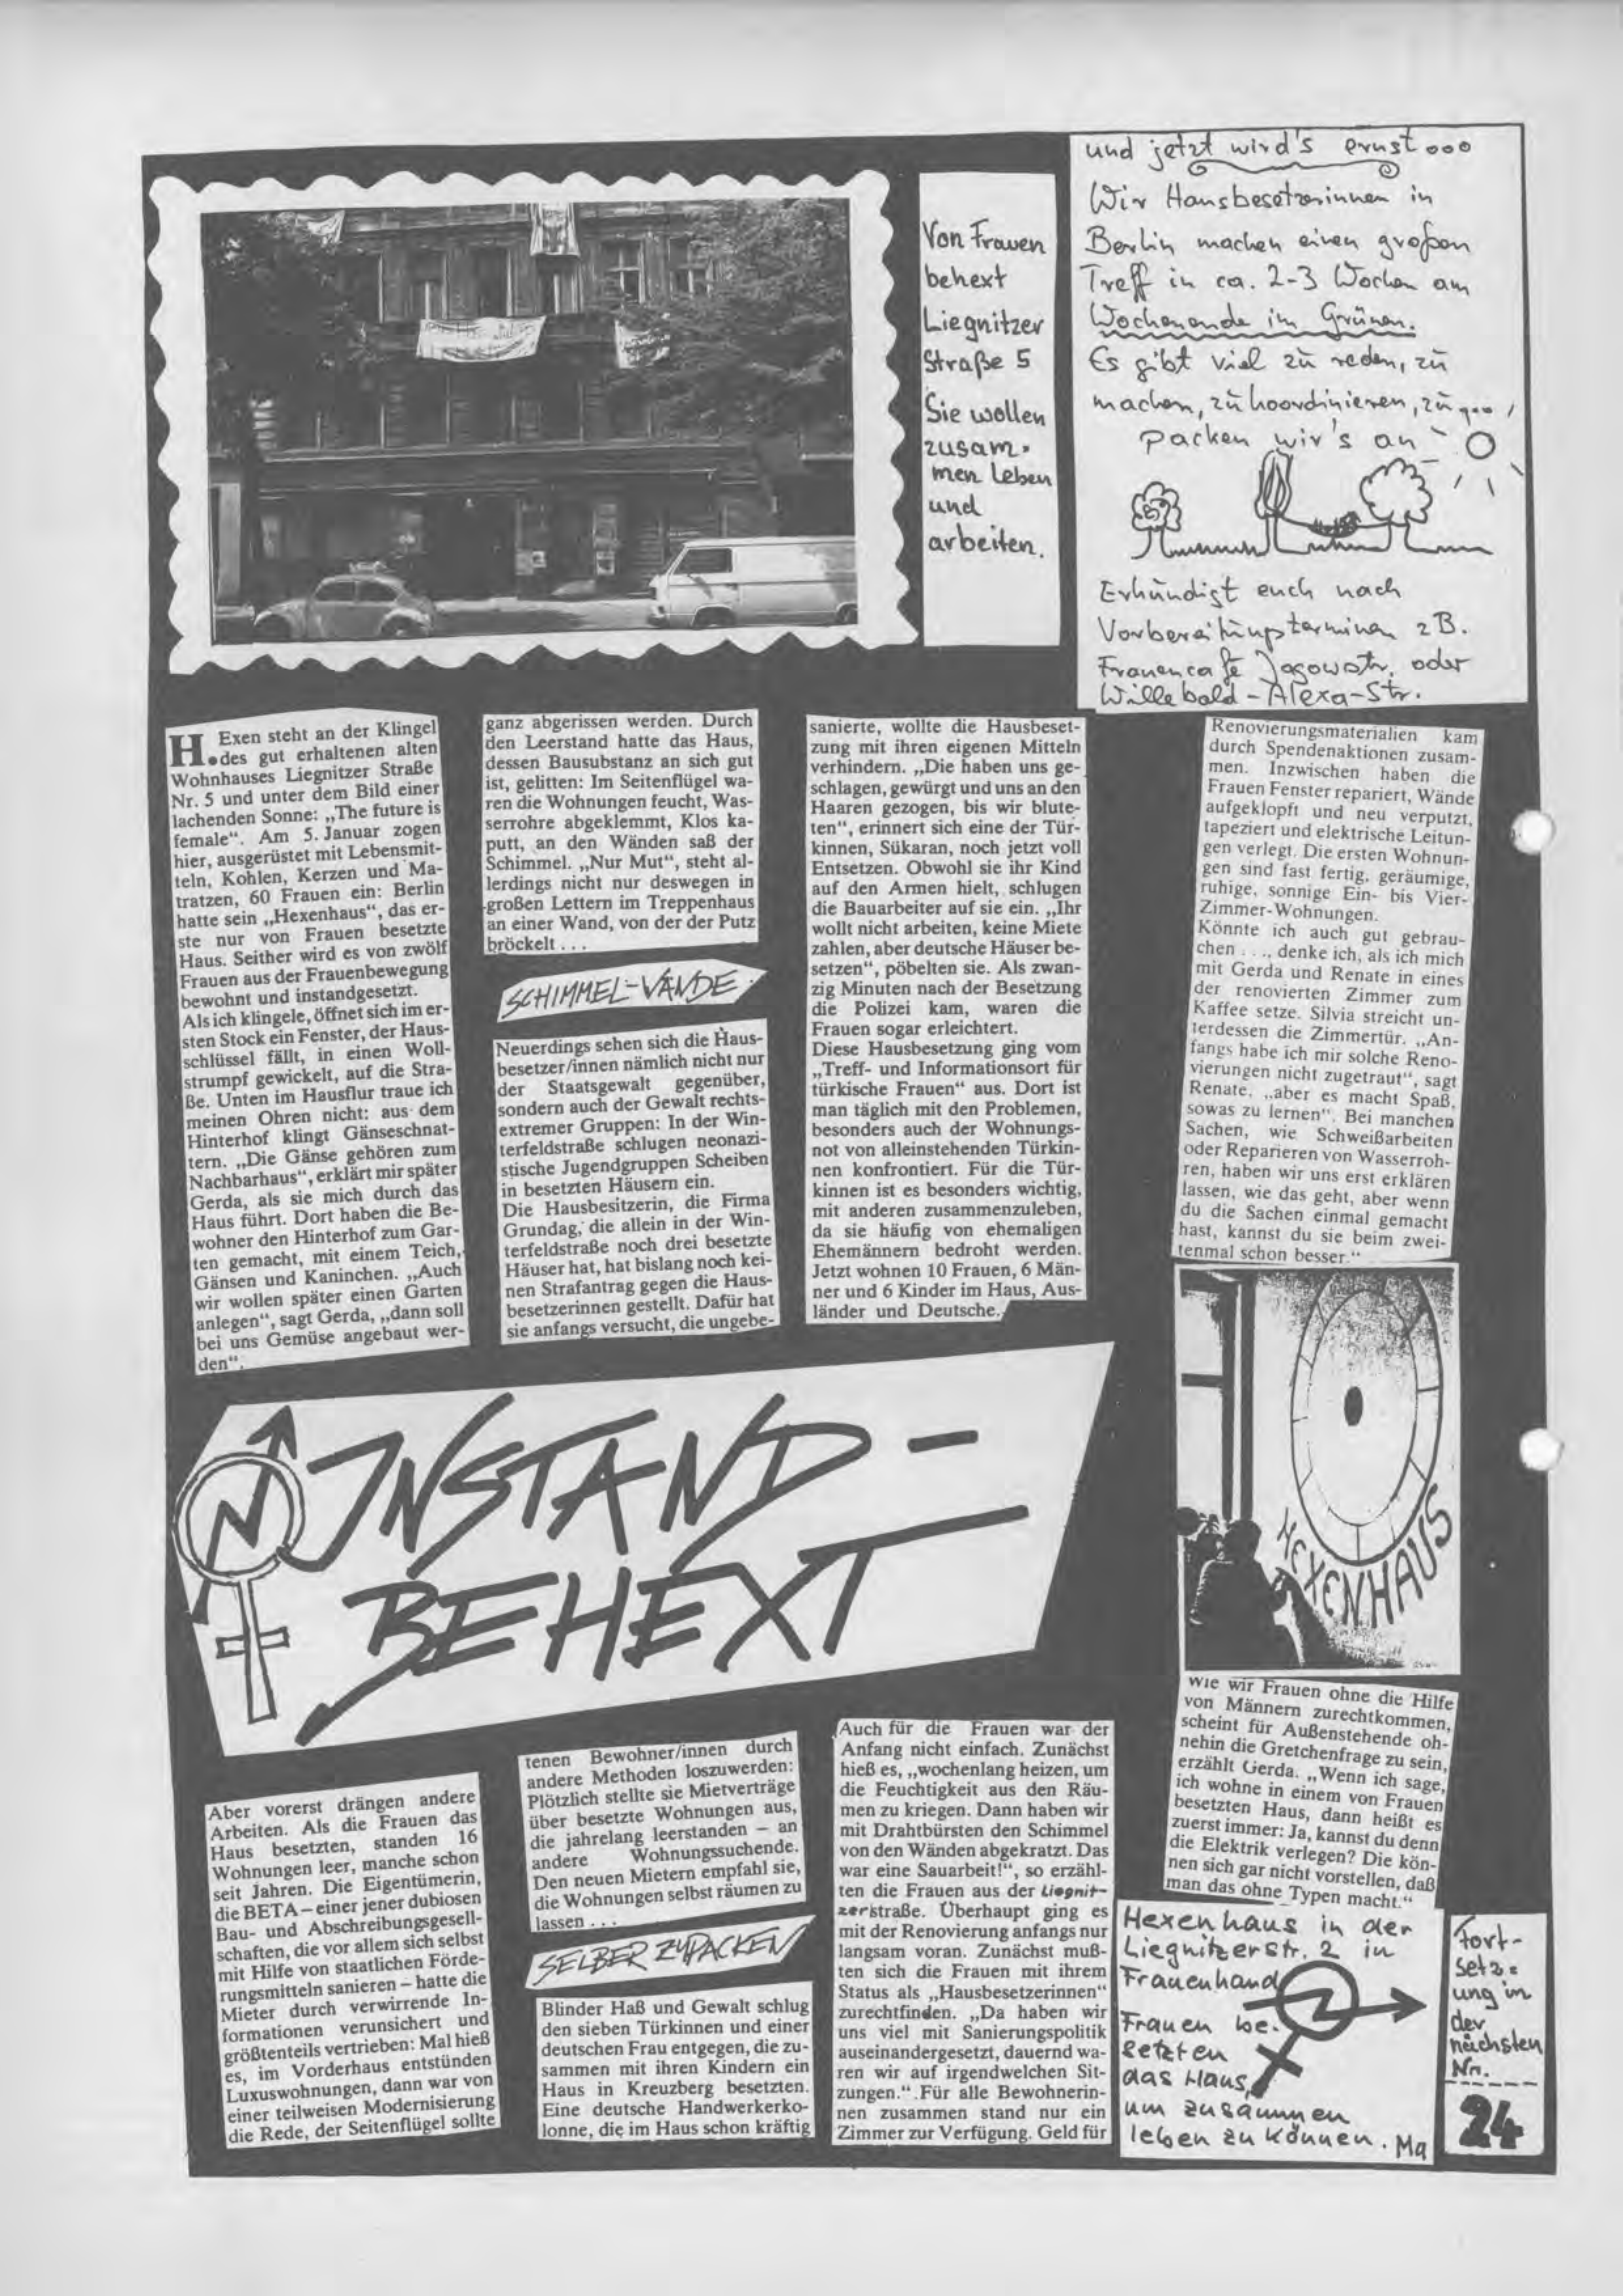 Von Frauen
behext
Liegnitzer
Straße 5
Sie wollen
zusam-
men Leben
und
arbeiten.
und jetzt wird's ernst ooo
Wir Hausbesetzerinnen in
Berlin machen einen großen
Treff in ca. 2-3 Wochen am
Wochenende im Grünen.
Es gibt viel zu reden, zu
machen, zu koordinieren, zu
packen wir's an
Erkundigt euch nach
Vorbereitungsterminen zB.
Frauencafe Jagowstr. oder
Willebald-Alexa-Str.
H. Exen steht an der Klingel
des gut erhaltenen alten
Wohnhauses Liegnitzer Straße
Nr. 5 und unter dem Bild einer
lachenden Sonne: „The future is
female“. Am 5. Januar zogen
hier, ausgerüstet mit Lebensmit-
teln, Kohlen, Kerzen und Ma-
tratzen, 60 Frauen ein: Berlin
hatte sein „Hexenhaus“, das er-
ste nur von Frauen besetzte
Haus. Seither wird es von zwölf
Frauen aus der Frauenbewegung
bewohnt und instandgesetzt.
Als ich klingele, öffnet sich im er-
sten Stock ein Fenster, der Haus-
schlüssel fällt, in einen Woll-
strumpf gewickelt, auf die Stra-
ße. Unten im Hausflur traue ich
meinen Ohren nicht: aus dem
Hinterhof klingt Gänseschnat-
tern. „Die Gänse gehören zum
Nachbarhaus“, erklärt mir später
Gerda, als sie mich durch das
Haus führt. Dort haben die Be-
wohner den Hinterhof zum Gar-
ten gemacht, mit einem Teich,
Gänsen und Kaninchen. „Auch
wir wollen später einen Garten
anlegen“, sagt Gerda, „dann soll
bei uns Gemüse angebaut wer-
den“.
INSTAND-
BEHEXT
Aber vorerst drängen andere
Arbeiten. Als die Frauen das
Haus besetzten, standen 16
Wohnungen leer, manche schon
seit Jahren. Die Eigentümerin,
die BETA – einer jener dubiosen
Bau- und Abschreibungsgesell-
schaften, die vor allem sich selbst
mit Hilfe von staatlichen Förde-
rungsmitteln sanieren – hatte die
Mieter durch verwirrende In-
formationen verunsichert und
größtenteils vertrieben: Mal hieß
es, im Vorderhaus entstünden
Luxuswohnungen, dann war von
einer teilweisen Modernisierung
die Rede, der Seitenflügel sollte
ganz abgerissen werden. Durch
den Leerstand hatte das Haus,
dessen Bausubstanz an sich gut
ist, gelitten: Im Seitenflügel wa-
ren die Wohnungen feucht, Was-
serrohre abgeklemmt, Klos ka-
putt, an den Wänden saß der
Schimmel. „Nur Mut“, steht al-
lerdings nicht nur deswegen in
großen Lettern im Treppenhaus
an einer Wand, von der der Putz
bröckelt . . .
SCHIMMEL-WÄNDE
Neuerdings sehen sich die Haus-
besetzer/innen nämlich nicht nur
der Staatsgewalt gegenüber,
sondern auch der Gewalt rechts-
extremer Gruppen: In der Win-
terfeldstraße schlugen neonazi-
stische Jugendgruppen Scheiben
in besetzten Häusern ein.
Die Hausbesitzerin, die Firma
Grundag, die allein in der Win-
terfeldstraße noch drei besetzte
Häuser hat, hat bislang noch kei-
nen Strafantrag gegen die Haus-
besetzerinnen gestellt. Dafür hat
sie anfangs versucht, die ungebe-
tenen Bewohner/innen durch
andere Methoden loszuwerden:
Plötzlich stellte sie Mietverträge
über besetzte Wohnungen aus,
die jahrelang leerstanden – an
andere Wohnungssuchende.
Den neuen Mietern empfahl sie,
die Wohnungen selbst räumen zu
lassen . . .
SELBER ZUPACKEN
Blinder Haß und Gewalt schlug
den sieben Türkinnen und einer
deutschen Frau entgegen, die zu-
sammen mit ihren Kindern ein
Haus in Kreuzberg besetzten.
Eine deutsche Handwerkerko-
lonne, die im Haus schon kräftig
sanierte, wollte die Hausbeset-
zung mit ihren eigenen Mitteln
verhindern. „Die haben uns ge-
schlagen, gewürgt und uns an den
Haaren gezogen, bis wir blute-
ten“, erinnert sich eine der Tür-
kinnen, Sükaran, noch jetzt voll
Entsetzen. Obwohl sie ihr Kind
auf den Armen hielt, schlugen
die Bauarbeiter auf sie ein. „Ihr
wollt nicht arbeiten, keine Miete
zahlen, aber deutsche Häuser be-
setzen“, pöbelten sie. Als zwan-
zig Minuten nach der Besetzung
die Polizei kam, waren die
Frauen sogar erleichtert.
Diese Hausbesetzung ging vom
„Treff- und Informationsort für
türkische Frauen“ aus. Dort ist
man täglich mit den Problemen,
besonders auch der Wohnungs-
not von alleinstehenden Türkin-
nen konfrontiert. Für die Tür-
kinnen ist es besonders wichtig,
mit anderen zusammenzuleben,
da sie häufig von ehemaligen
Ehemännern bedroht werden.
Jetzt wohnen 10 Frauen, 6 Män-
ner und 6 Kinder im Haus, Aus-
länder und Deutsche.
Auch für die Frauen war der
Anfang nicht einfach. Zunächst
hieß es, „wochenlang heizen, um
die Feuchtigkeit aus den Räu-
men zu kriegen. Dann haben wir
mit Drahtbürsten den Schimmel
von den Wänden abgekratzt. Das
war eine Sauarbeit!“, so erzähl-
ten die Frauen aus der Liegnit-
zerstraße. Überhaupt ging es
mit der Renovierung anfangs nur
langsam voran. Zunächst muß-
ten sich die Frauen mit ihrem
Status als „Hausbesetzerinnen“
zurechtfinden. „Da haben wir
uns viel mit Sanierungspolitik
auseinandergesetzt, dauernd wa-
ren wir auf irgendwelchen Sit-
zungen.“ Für alle Bewohnerin-
nen zusammen stand nur ein
Zimmer zur Verfügung. Geld für
Renovierungsmaterialien kam
durch Spendenaktionen zusam-
men. Inzwischen haben die
Frauen Fenster repariert, Wände
aufgeklopft und neu verputzt,
tapeziert und elektrische Leitun-
gen verlegt. Die ersten Wohnun-
gen sind fast fertig, geräumige,
ruhige, sonnige Ein- bis Vier-
Zimmer-Wohnungen.
Könnte ich auch gut gebrau-
chen . . ., denke ich, als ich mich
mit Gerda und Renate in eines
der renovierten Zimmer zum
Kaffee setze. Silvia streicht un-
terdessen die Zimmertür. „An-
fangs habe ich mir solche Reno-
vierungen nicht zugetraut“, sagt
Renate, „aber es macht Spaß,
sowas zu lernen“. Bei manchen
Sachen, wie Schweißarbeiten
oder Reparieren von Wasserroh-
ren, haben wir uns erst erklären
lassen, wie das geht, aber wenn
du die Sachen einmal gemacht
hast, kannst du sie beim zwei-
tenmal schon besser.“
HEXENHAUS
Wie wir Frauen ohne die Hilfe
von Männern zurechtkommen,
scheint für Außenstehende oh-
nehin die Gretchenfrage zu sein,
erzählt Gerda. „Wenn ich sage,
ich wohne in einem von Frauen
besetzten Haus, dann heißt es
zuerst immer: Ja, kannst du denn
die Elektrik verlegen? Die kön-
nen sich gar nicht vorstellen, daß
man das ohne Typen macht.“
Hexenhaus in der
Liegnitzerstr. 2 in
Frauenhand
Frauen be-
setzten
das Haus,
um zusammen
leben zu können. Ma
Fort-
setz-
ung in
der
nächsten
Nr.
24